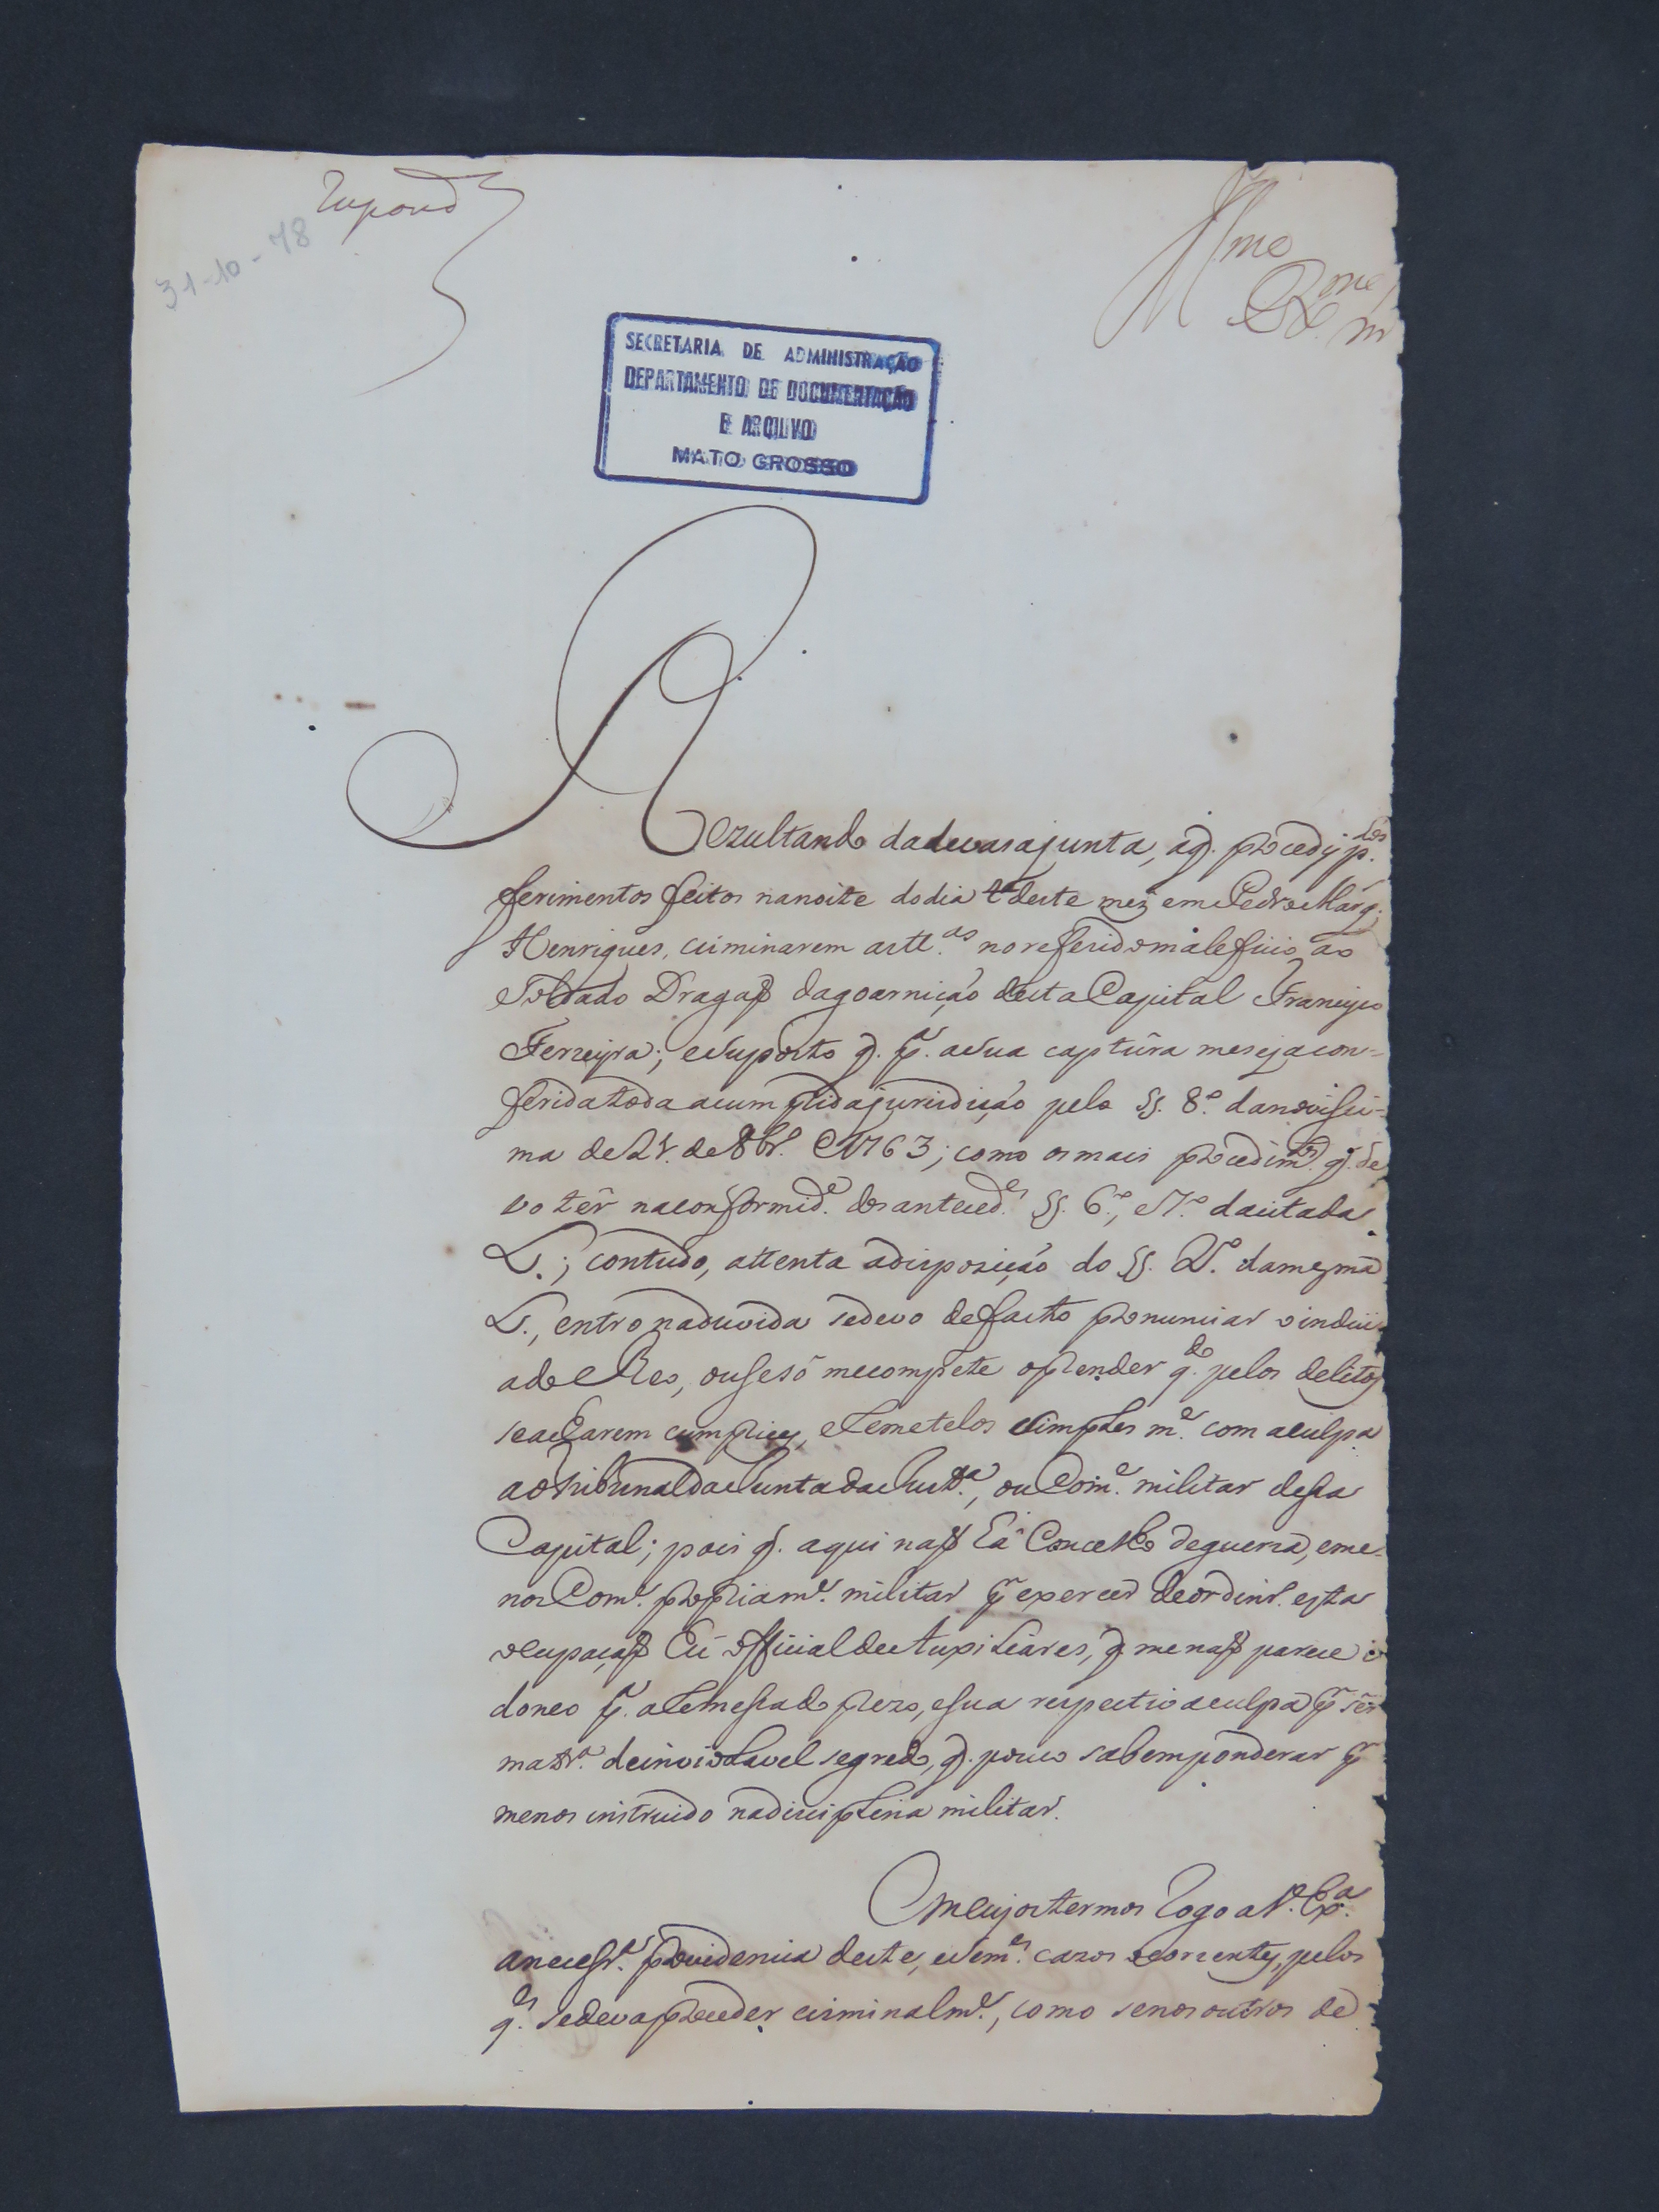 Respond.
31-10-78
Illmo
Exmo Snr
SECRETARIA DE ADMINISTRAÇÃO
DEPARTAMENTO DE DOCUMENTAÇÃO
E ARQUIVO
MATO GROSSO
Rezultando dadevasajunta, aq. procedy p.los
ferimentos feitos nanoite dodia deste mez em Pedro Marq.
Henriques, criminarem as tt.as noreferidomaleficio, ao
Soldado Dragaõ dagoarniçáo destaCapital Francisco
Ferreyra; esuposto q. p.a asua captûra mesejacon=
feridatoda acumprida jurisdiçáo pelo §. 8.º danovissi=
ma de 21. de 8br.º e 1763; como osmais procedim.tos q. de
vo têr naconformid.e dos anteced.es §§. 6.º, e 7.º dacitada
L.; contudo, attenta adispoziçáo do §. 2.º damesma
L., entro naduvida sedevo defacto pronunciar oindici
ado Reo, ousesó mecompete oprender q.do pelos delitos
seacharem cumplices, eremetelos simples m.e com aculpa
aoTribunaldaJuntadaJust.a, ou Com.e militar desta
Capital; pois q. aqui naõ há Concelho deguerra, eme=
nosCom.e propriam.e militar q.m exercer deordinr.º esta
ocupaçaõ hé official de Auxiliares, q. me naõ parece i
doneo p.a aremessado prezo, esua respectiva culpa p.r sêr
matr.a deinviolavel segredo, q. pouco sabemponderar q.m
menos instruido nadisciplina militar.
Emcujostermos rogo a V. Ex.a
aneces r.a providencia deste, esem.es cazos ocorrentes, pelos
q.es sedeva proceder criminalm.e, como senosoutros de